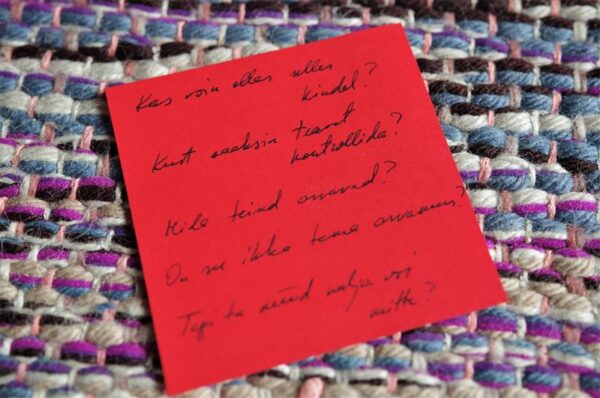 Kas võin olla selles
kindel?
Kust saaksin teavet
kontrollida?
Mida teised arvavad?
On see ikka tema arvamus?
Tegi ta nüüd nalja või
mitte?